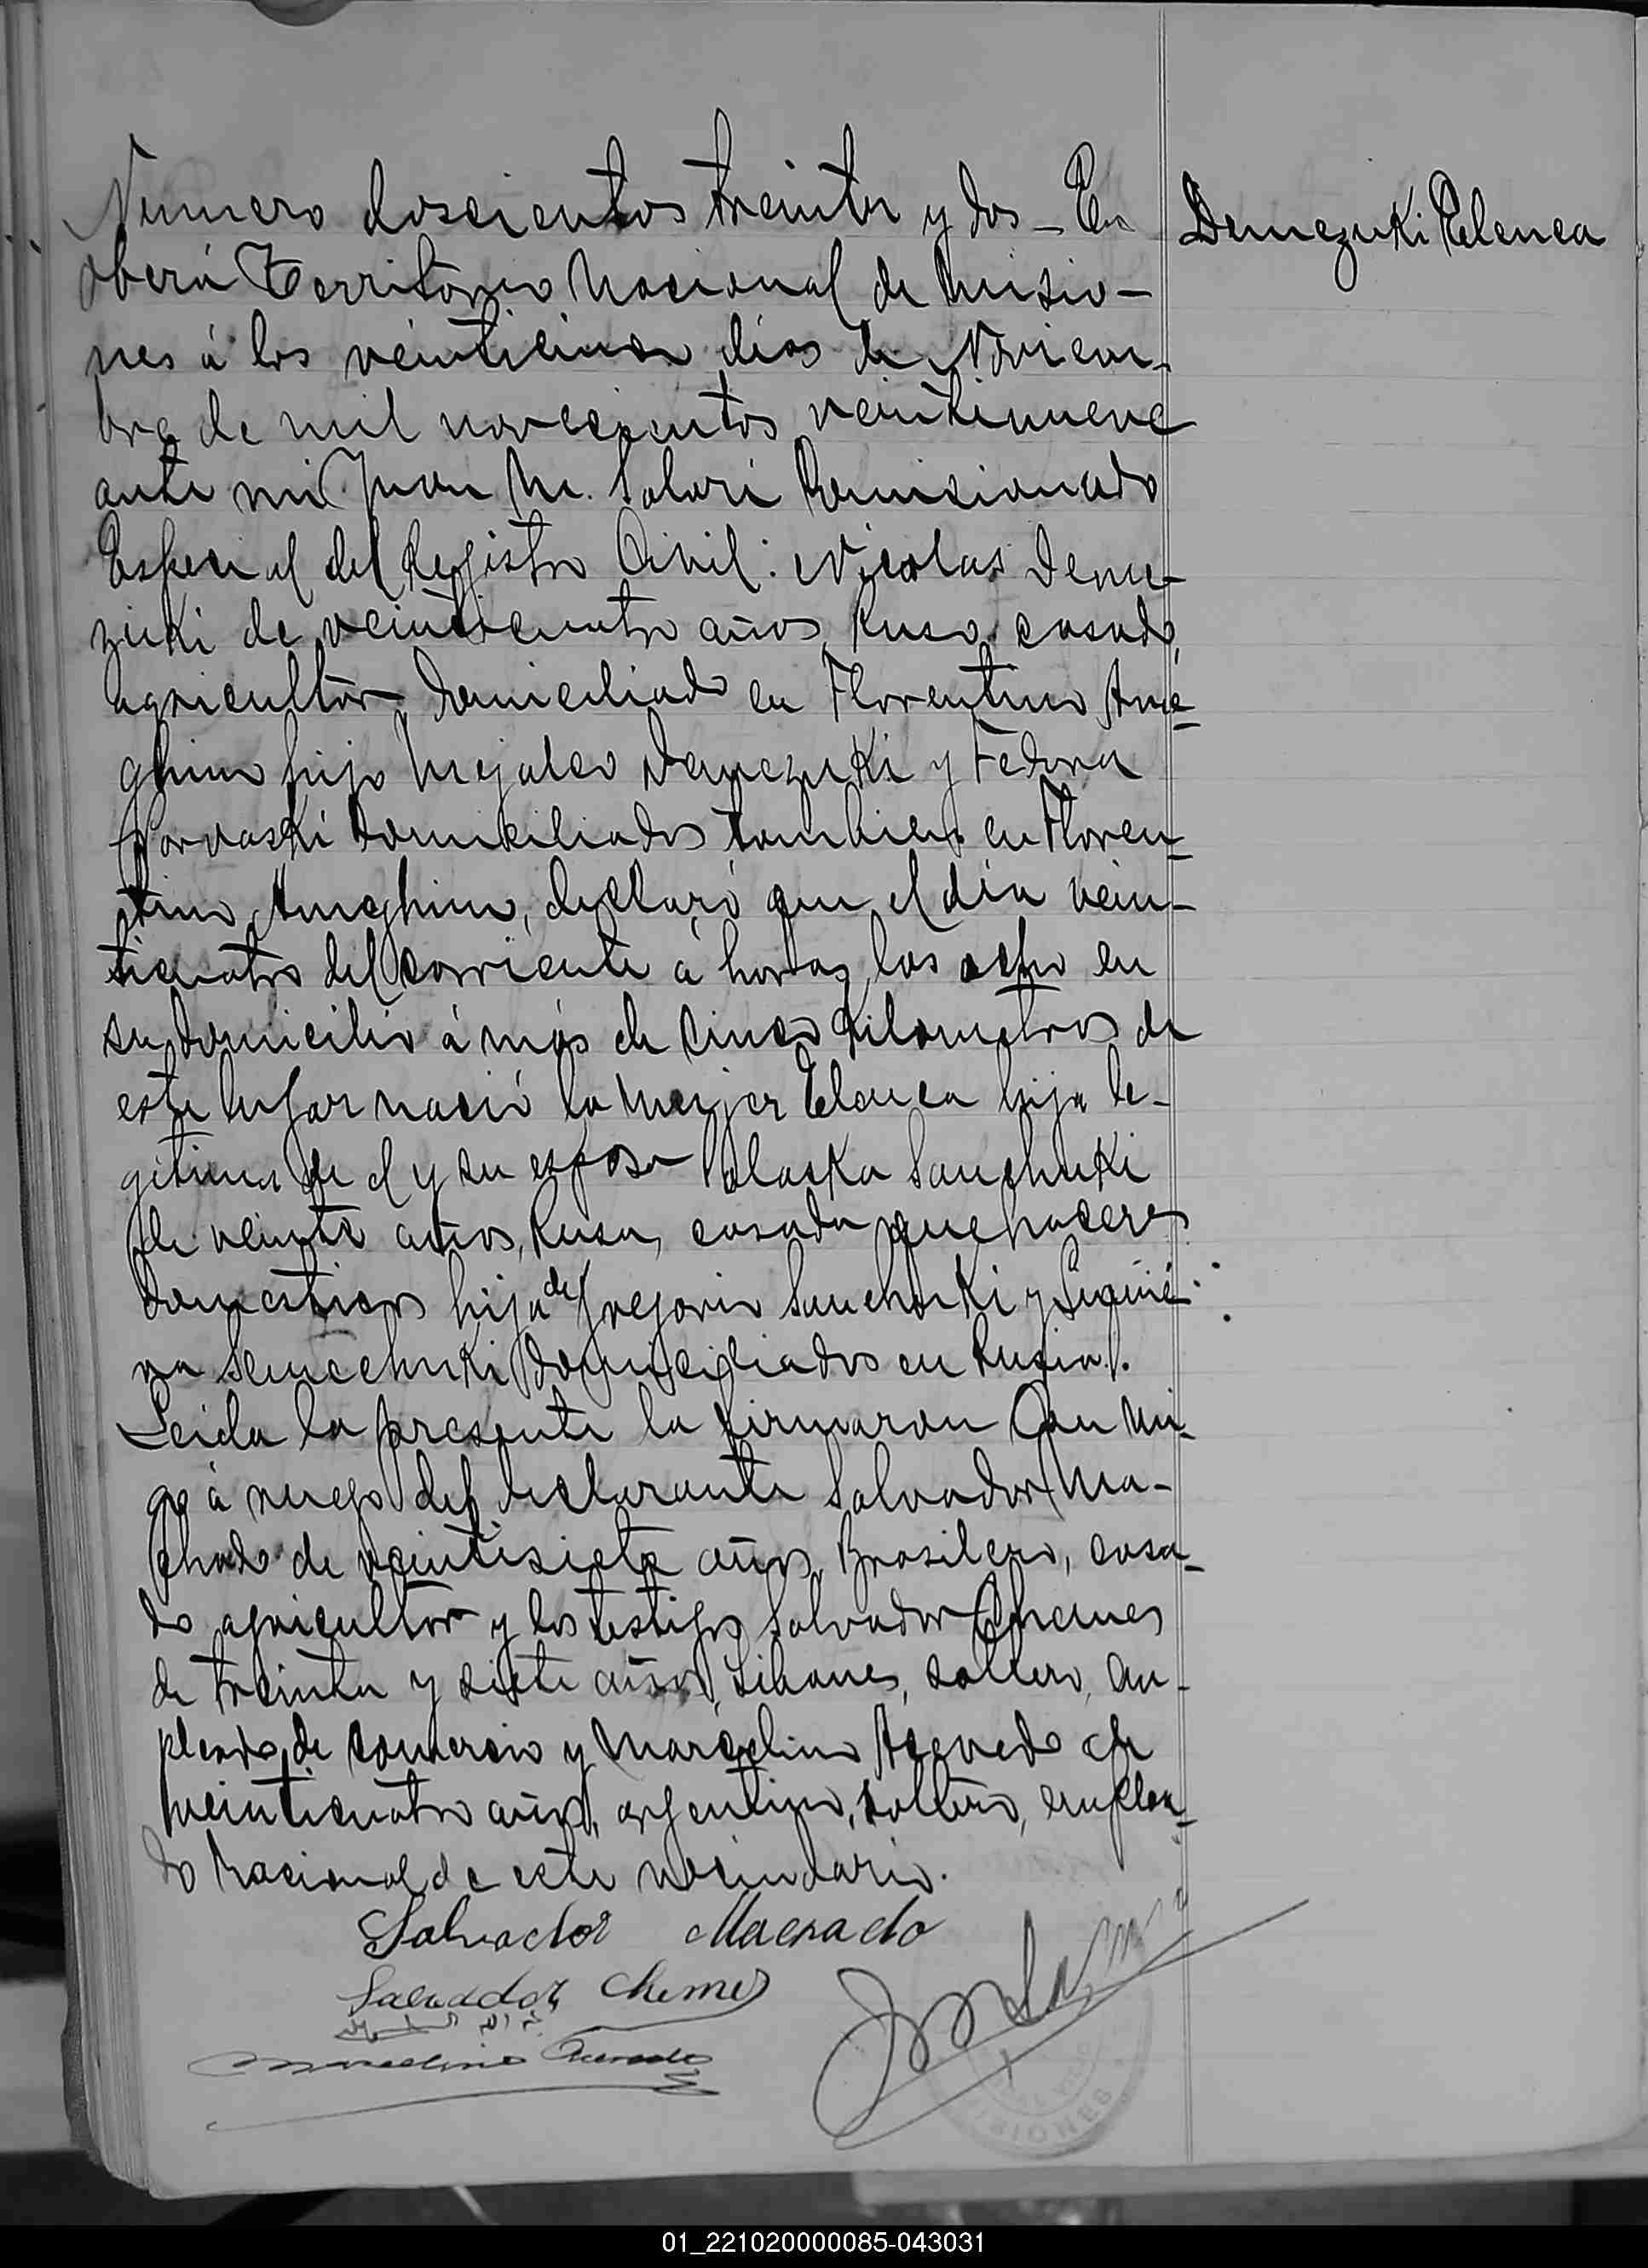 Numero doscientos treinta y dos - En
Demezuki Elenca
Oberá Territorio Nacional de Misio-
nes á los veinticinco dias de Noviem-
bre de mil novecientos veintinueve
ante mi Juan M. Salari Comisionado
Especial del Registro Civil: Nicolas Deme-
zuki de veinticuatro años, Ruso, casado,
agricultor, domiciliado en Florentino Ame-
ghino hijo Mejalco Demezuki y Fedora
domiciliados tambien en Floren-
tino Ameghino, declaró que el día vein-
ticuatro del corriente á horas las ocho en
su domicilio á más de cinco Kilometros de
este lugar nació la mujer Elenca hija le-
gitima de el y su esposa Palaska Sanchuki
de veinte años, Rusa, casada quehaceres
domesticos hija de Gregorio Sanchuki y
na Semechuki domiciliados en Rusia.
Leida la presente la firmaron Con mi-
go á ruego del declarante Salvador Ma-
chado de veintisiete años, Brasilero, casa-
do agricultor y los testigos Salvador Chemes
de treinta y siete años, Libanes, soltero, em-
pleado de comercio y Marcelino Acevedo de
veinticuatro años, argentino, soltero, emplea-
do Nacional de este vecindario.
Salvador Machado
Salvador Chemes
Marcelino Acevedo
MISIONES
01_221020000085-043031